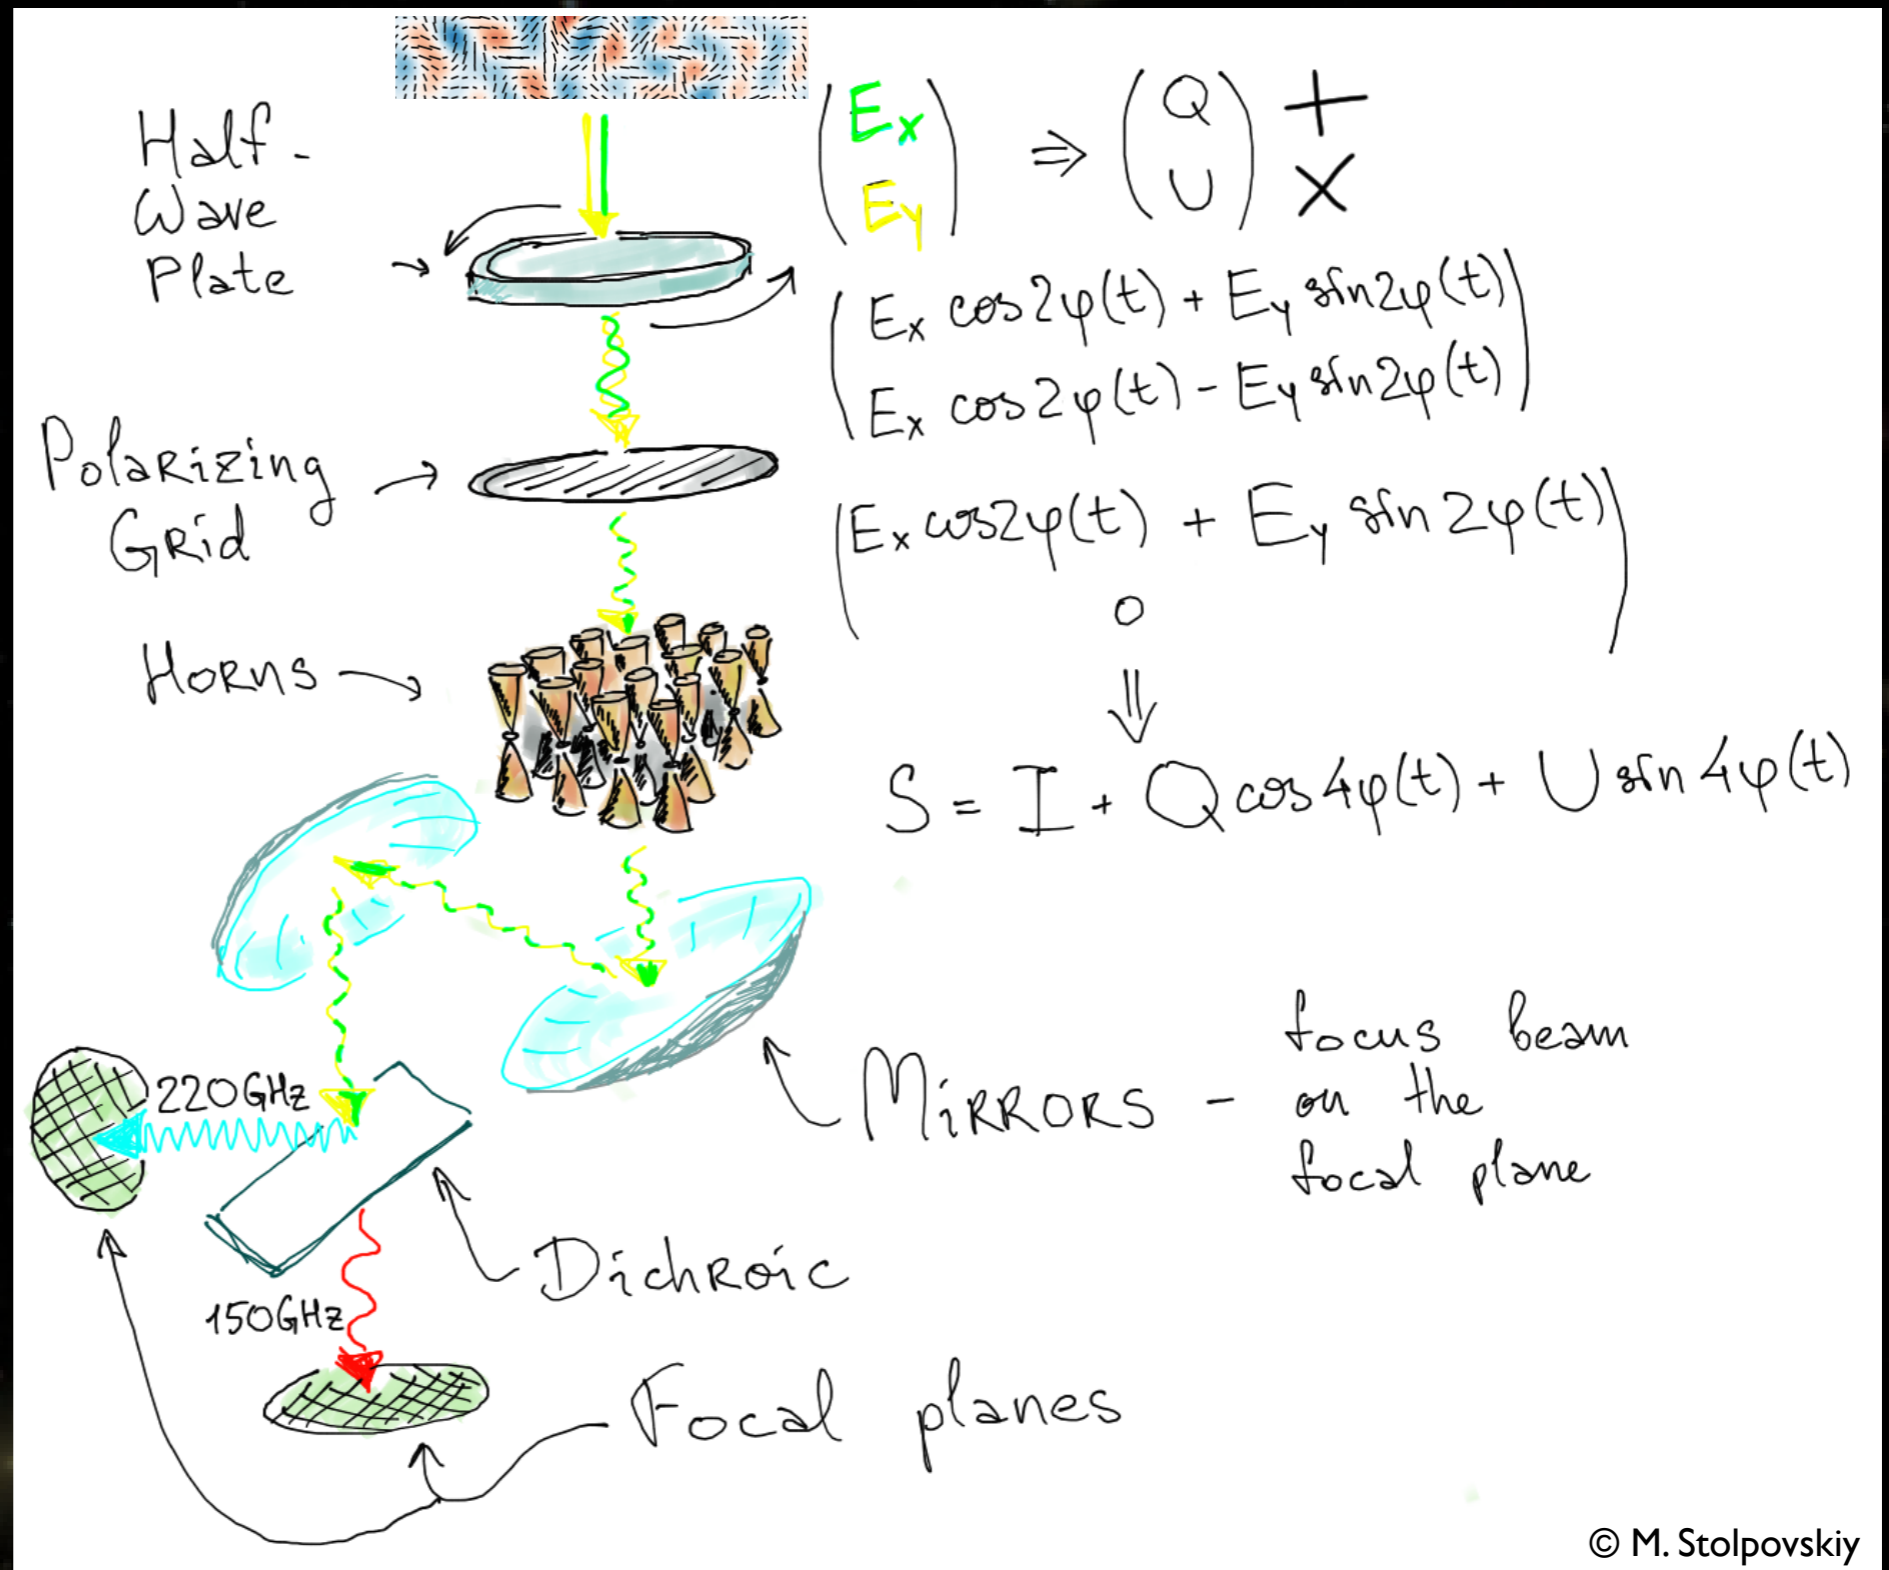 Half-
Wave
Plate
(Ex
Ey) ⇒ (Q
U) + ×
(Ex cos2φ(t) + Ey sin2φ(t)
Ex cos2φ(t) - Ey sin2φ(t))
Polarizing
Grid
(Ex cos2φ(t) + Ey sin2φ(t)
0)
⇓
Horns
S = I + Q cos4φ(t) + U sin4φ(t)
Mirrors - focus beam
on the
focal plane
220GHz
Dichroic
150GHz
Focal planes
© M. Stolpovskiy